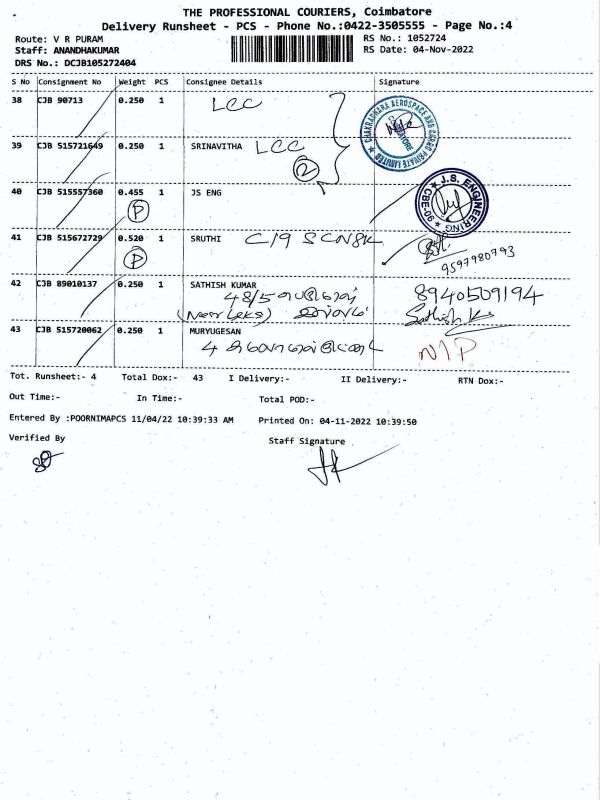 THE PROFESSIONAL COURIERS, Coimbatore
Delivery Runsheet - PCS - Phone No.:0422-3505555 - Page No.:4
Route: V R PURAM
RS No.: 1052724
Staff: ANANDHAKUMAR
RS Date: 04-Nov-2022
DRS No.: DCJB105272404
S No Consignment No Weight PCS Consignee Details Signature
38 CJB 90713 0.250 1 LCC
CHAKRADHARA AEROSPACE AND CARGO PRIVATE LIMITED
39 CJB 515721649 0.250 1 SRINAVITHA LCC
2
40 CJB 515557360 0.455 1 JS ENG
P
J.S. ENGINEERING
CBE-
41 CJB 515672729 0.520 1 SRUTHI
P
9597980793
42 CJB 89010137 0.250 1 SATHISH KUMAR
48/5
8940509194
Sathish K
43 CJB 515720062 0.250 1 MURYUGESAN
4
N/P
Tot. Runsheet:- 4 Total Dox:- 43 I Delivery:- II Delivery:- RTN Dox:-
Out Time:- In Time:- Total POD:-
Entered By :POORNIMAPCS 11/04/22 10:39:33 AM Printed On: 04-11-2022 10:39:50
Verified By Staff Signature